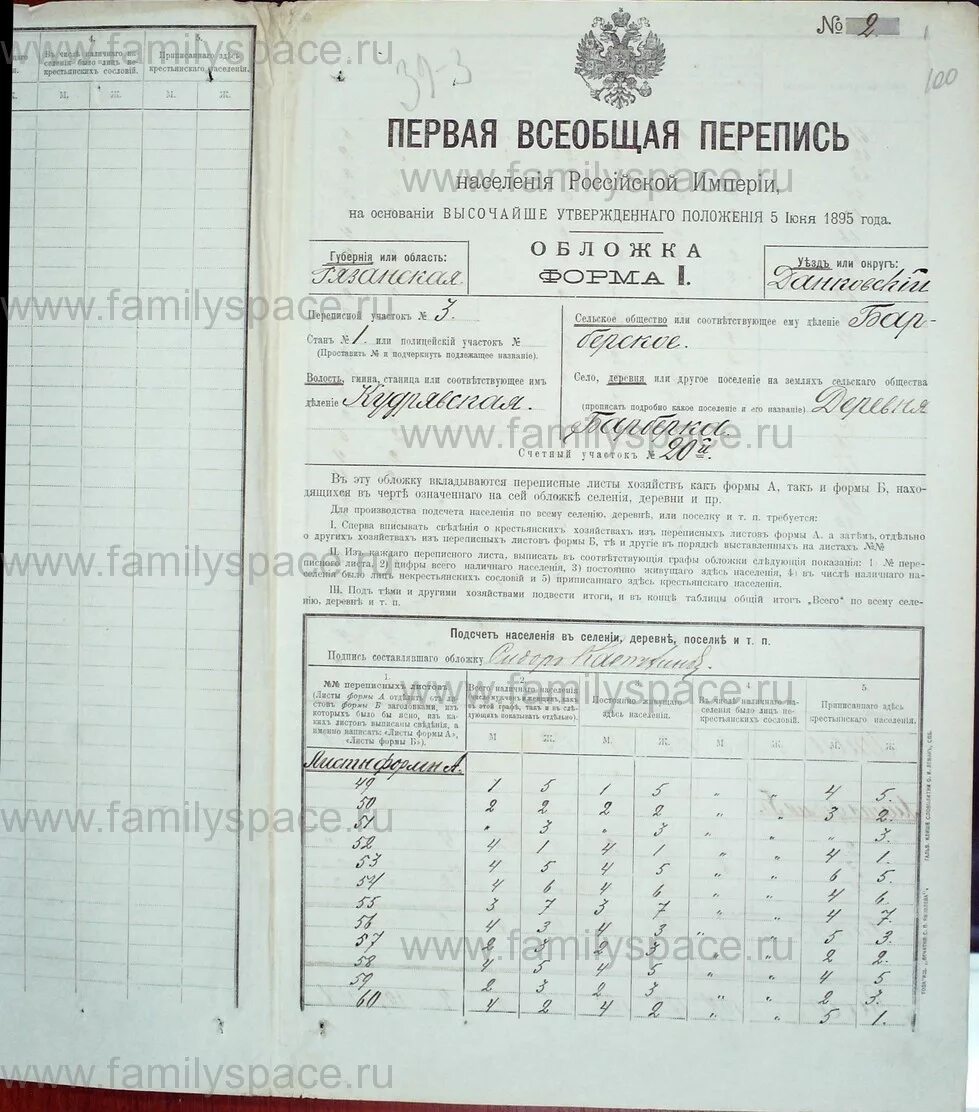 4.
5.
Въ числѣ наличнаго на-
селенія было лицъ не-
крестьянскихъ сословій.
Приписаннаго здѣсь
крестьянскаго населенія.
М.
Ж.
М.
Ж.
№ 2
100
39-3
ПЕРВАЯ ВСЕОБЩАЯ ПЕРЕПИСЬ
населенія Россійской Имперіи,
на основаніи ВЫСОЧАЙШЕ УТВЕРЖДЕННАГО ПОЛОЖЕНІЯ 5 Іюня 1895 года.
ОБЛОЖКА
ФОРМА I.
Губернія или область:
Рязанская
Уѣздъ или округъ:
Данковскій
Переписной участокъ № 3.
Станъ № 1. или полицейскій участокъ №
(Проставить № и подчеркнуть подлежащее названіе).
Волость, гмина, станица или соотвѣтствующее имъ
дѣленіе Кудрявская.
Сельское общество или соотвѣтствующее ему дѣленіе Бар-
берское.
Село, деревня или другое поселеніе на земляхъ сельскаго общества
(прописать подробно какое поселеніе и его названіе) Деревня
Барберка.
Счетный участокъ № 20й.
Въ эту обложку вкладываются переписные листы хозяйствъ какъ формы А, такъ и формы Б, нахо-
дящихся въ чертѣ означеннаго на сей обложкѣ селенія, деревни и пр.
Для производства подсчета населенія по всему селенію, деревнѣ, или поселку и т. п. требуется:
I. Сперва вписывать свѣдѣнія о крестьянскихъ хозяйствахъ изъ переписныхъ листовъ формы А. а затѣмъ, отдѣльно
о другихъ хозяйствахъ изъ переписныхъ листовъ формы Б, тѣ и другіе въ порядкѣ выставленныхъ на листахъ №№
II. Изъ каждаго переписного листа, выписать въ соотвѣтствующія графы обложки слѣдующія показанія: 1) № пере-
писного листа, 2) цифры всего наличнаго населенія, 3) постоянно живущаго здѣсь населенія, 4) въ числѣ наличнаго на-
селенія было лицъ некрестьянскихъ сословій и 5) приписаннаго здѣсь крестьянскаго населенія.
III. Подъ тѣми и другими хозяйствами подвести итоги, и въ концѣ таблицы общій итогъ „Всего“ по всему селе-
нію, деревнѣ и т. п.
Подсчетъ населенія въ селеніи, деревнѣ, поселкѣ и т. п.
Подпись составлявшаго обложку Сидоръ
1.
№№ переписныхъ листовъ.
(Листы формы А отдѣлить отъ ли-
стовъ формы Б заголовками, изъ
которыхъ было бы ясно, изъ ка-
кихъ листовъ выписаны свѣдѣнія, а
именно написать: «Листы формы А»,
«Листы формы Б»).
2.
Всего наличнаго населенія
3.
Постоянно живущаго
здѣсь населенія.
4.
Въ числѣ наличнаго на-
селенія было лицъ не-
крестьянскихъ сословій.
5.
Приписаннаго здѣсь
крестьянскаго населенія.
М Ж. М. Ж. М Ж. М. Ж.
Листы формы А.
49 1 5 1 5 „ „ 4 5.
50 2 2 2 2 „ „ 3 2.
51 „ 3 „ 3 „ „ „ 3.
52 4 1 4 1 „ „ 4 1.
53 4 5 4 5 „ „ 6 5.
54 4 6 4 6 „ „ 4 6.
55 3 7 3 7 „ „ 4 7.
56 4 3 4 3 „ „ 5 3.
57 2 3 2 3 „ „ 2 2.
58 4 5 4 5 „ „ 4 5.
59 2 3 2 3 „ „ 2 3.
60 4 2 4 2 „ „ 5 1.
www.familyspace.ru
www.familyspace.ru
www.familyspace.ru
www.familyspace.ru
www.familyspace.ru
www.familyspace.ru
www.familyspace.ru
www.familyspace.ru
www.familyspace.ru